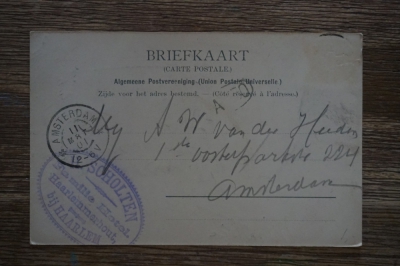 BRIEFKAART
(CARTE POSTALE.)
Algemeene Postvereeniging (Union Postale Universelle)
Zijde voor het adres bestemd. — (Côté réservé à l'adresse.)
AMSTERDAM
12-6
A W van der
1ste oosterparkstr 224
Amsterdam
SCHOLTEN
bij HAARLEM